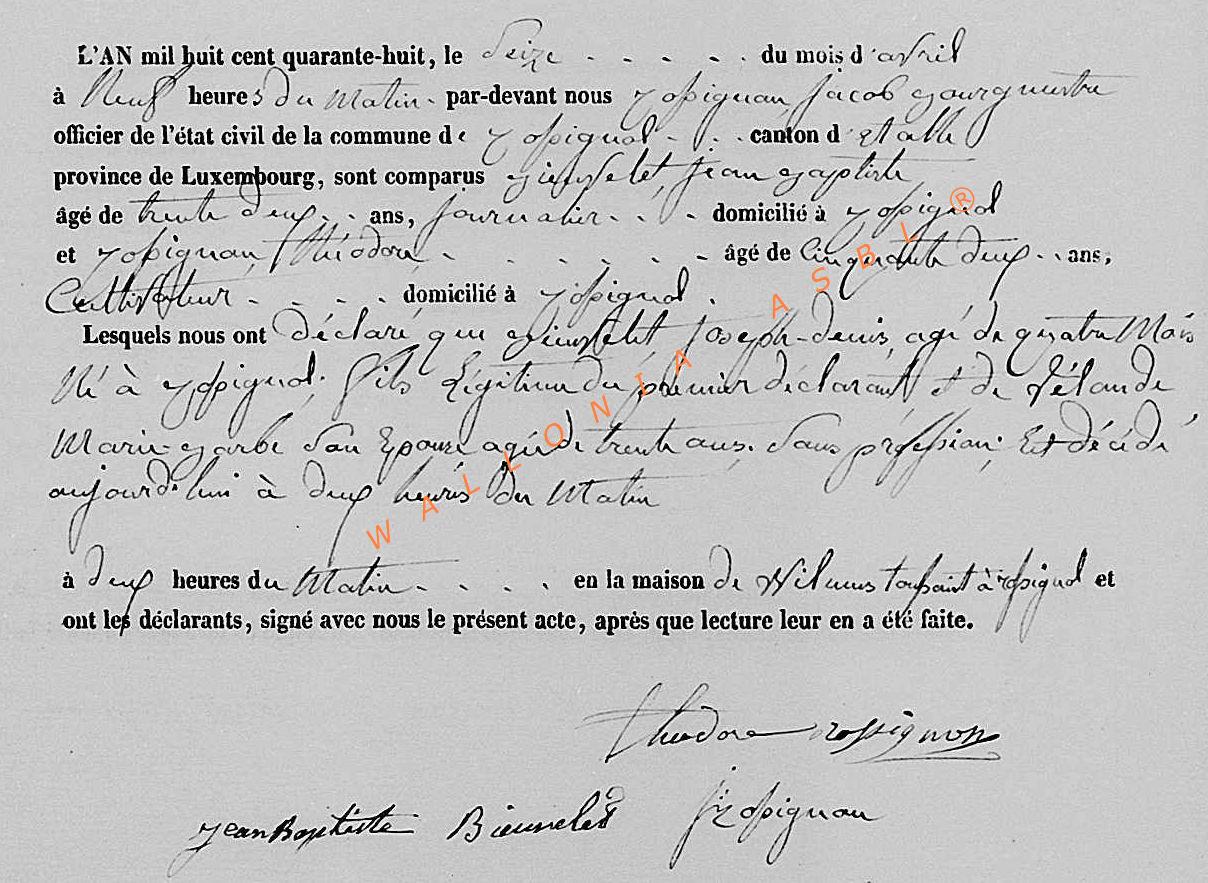 L'AN mil huit cent quarante-huit, le Seize - - - - - du mois d'avril
à Neuf heures du Matin - par-devant nous rossignon, Jacob Bourgmestre
officier de l'état civil de la commune de rossignol - - - canton d'etalle
province de Luxembourg, sont comparus Bieuvelet, Jean Baptiste
âgé de trente deux - - ans, Journalier - - - - domicilié à rossignol
et rossignon, Théodore, - - - - - - - âgé de Cinquante deux - - ans,
Cultivateur - - - - domicilié à rossignol.
Lesquels nous ont déclaré que Bieuvelet Joseph-denis, agé de quatre Mois
Né à rossignol, fils Légitime du premier déclarant et de
Marie-Barbe Son Epouse agée de trente ans. Sans profession. Est décédé
aujourd'hui à deux heures du Matin
à deux heures du Matin - - - - en la maison de toussaint à rossignol et
ont les déclarants, signé avec nous le présent acte, après que lecture leur en a été faite.
theodore rossignon
Jean Baptiste Bieuvelet J rossignon
WALLONIA ASBL ®